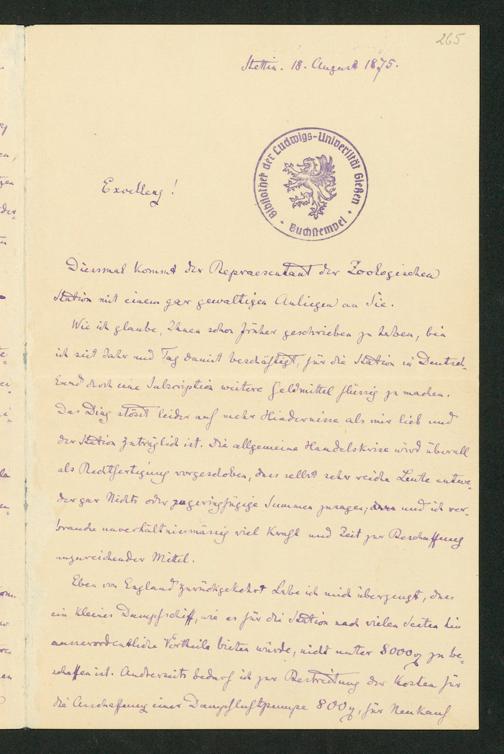 265
Stettin. 18. August 1875.
Bibliothek der Ludwigs-Universität Gießen
Buchstempel
Excellenz!
Diesmal kommt der Repraesentant der Zoologischen
Station mit einem gar gewaltigen Anliegen an Sie.
Wie ich glaube, Ihnen schon früher geschrieben zu haben, bin
ich seit Jahr und Tag damit beschäftigt, für die Station in Deutsch-
land durch eine Subscription weitere Geldmittel flüssig zu machen.
Das Ding stösst leider auf mehr Hindernisse als mir lieb und
der Station zuträglich ist. Die allgemeine Handelskrise wird überall
als Rechtfertigung vorgeschoben, dass selbst sehr reiche Leute entwe-
der gar Nichts oder zu geringfügige Summen zusagen, und ich ver-
brauche unverhältnissmässig viel Kraft und Zeit zur Beschaffung
unzureichender Mittel.
Eben von England zurückgekehrt habe ich mich überzeugt, dass
ein kleines Dampfschiff, wie es für die Station nach vielen Seiten hin
ausserordentliche Vortheile bieten würde, nicht unter 8000 zu be-
schaffen ist. Andrerseits bedarf ich zur Bestreitung der Kosten für
die Anschaffung einer Dampfluftpumpe 800, für Neukauf